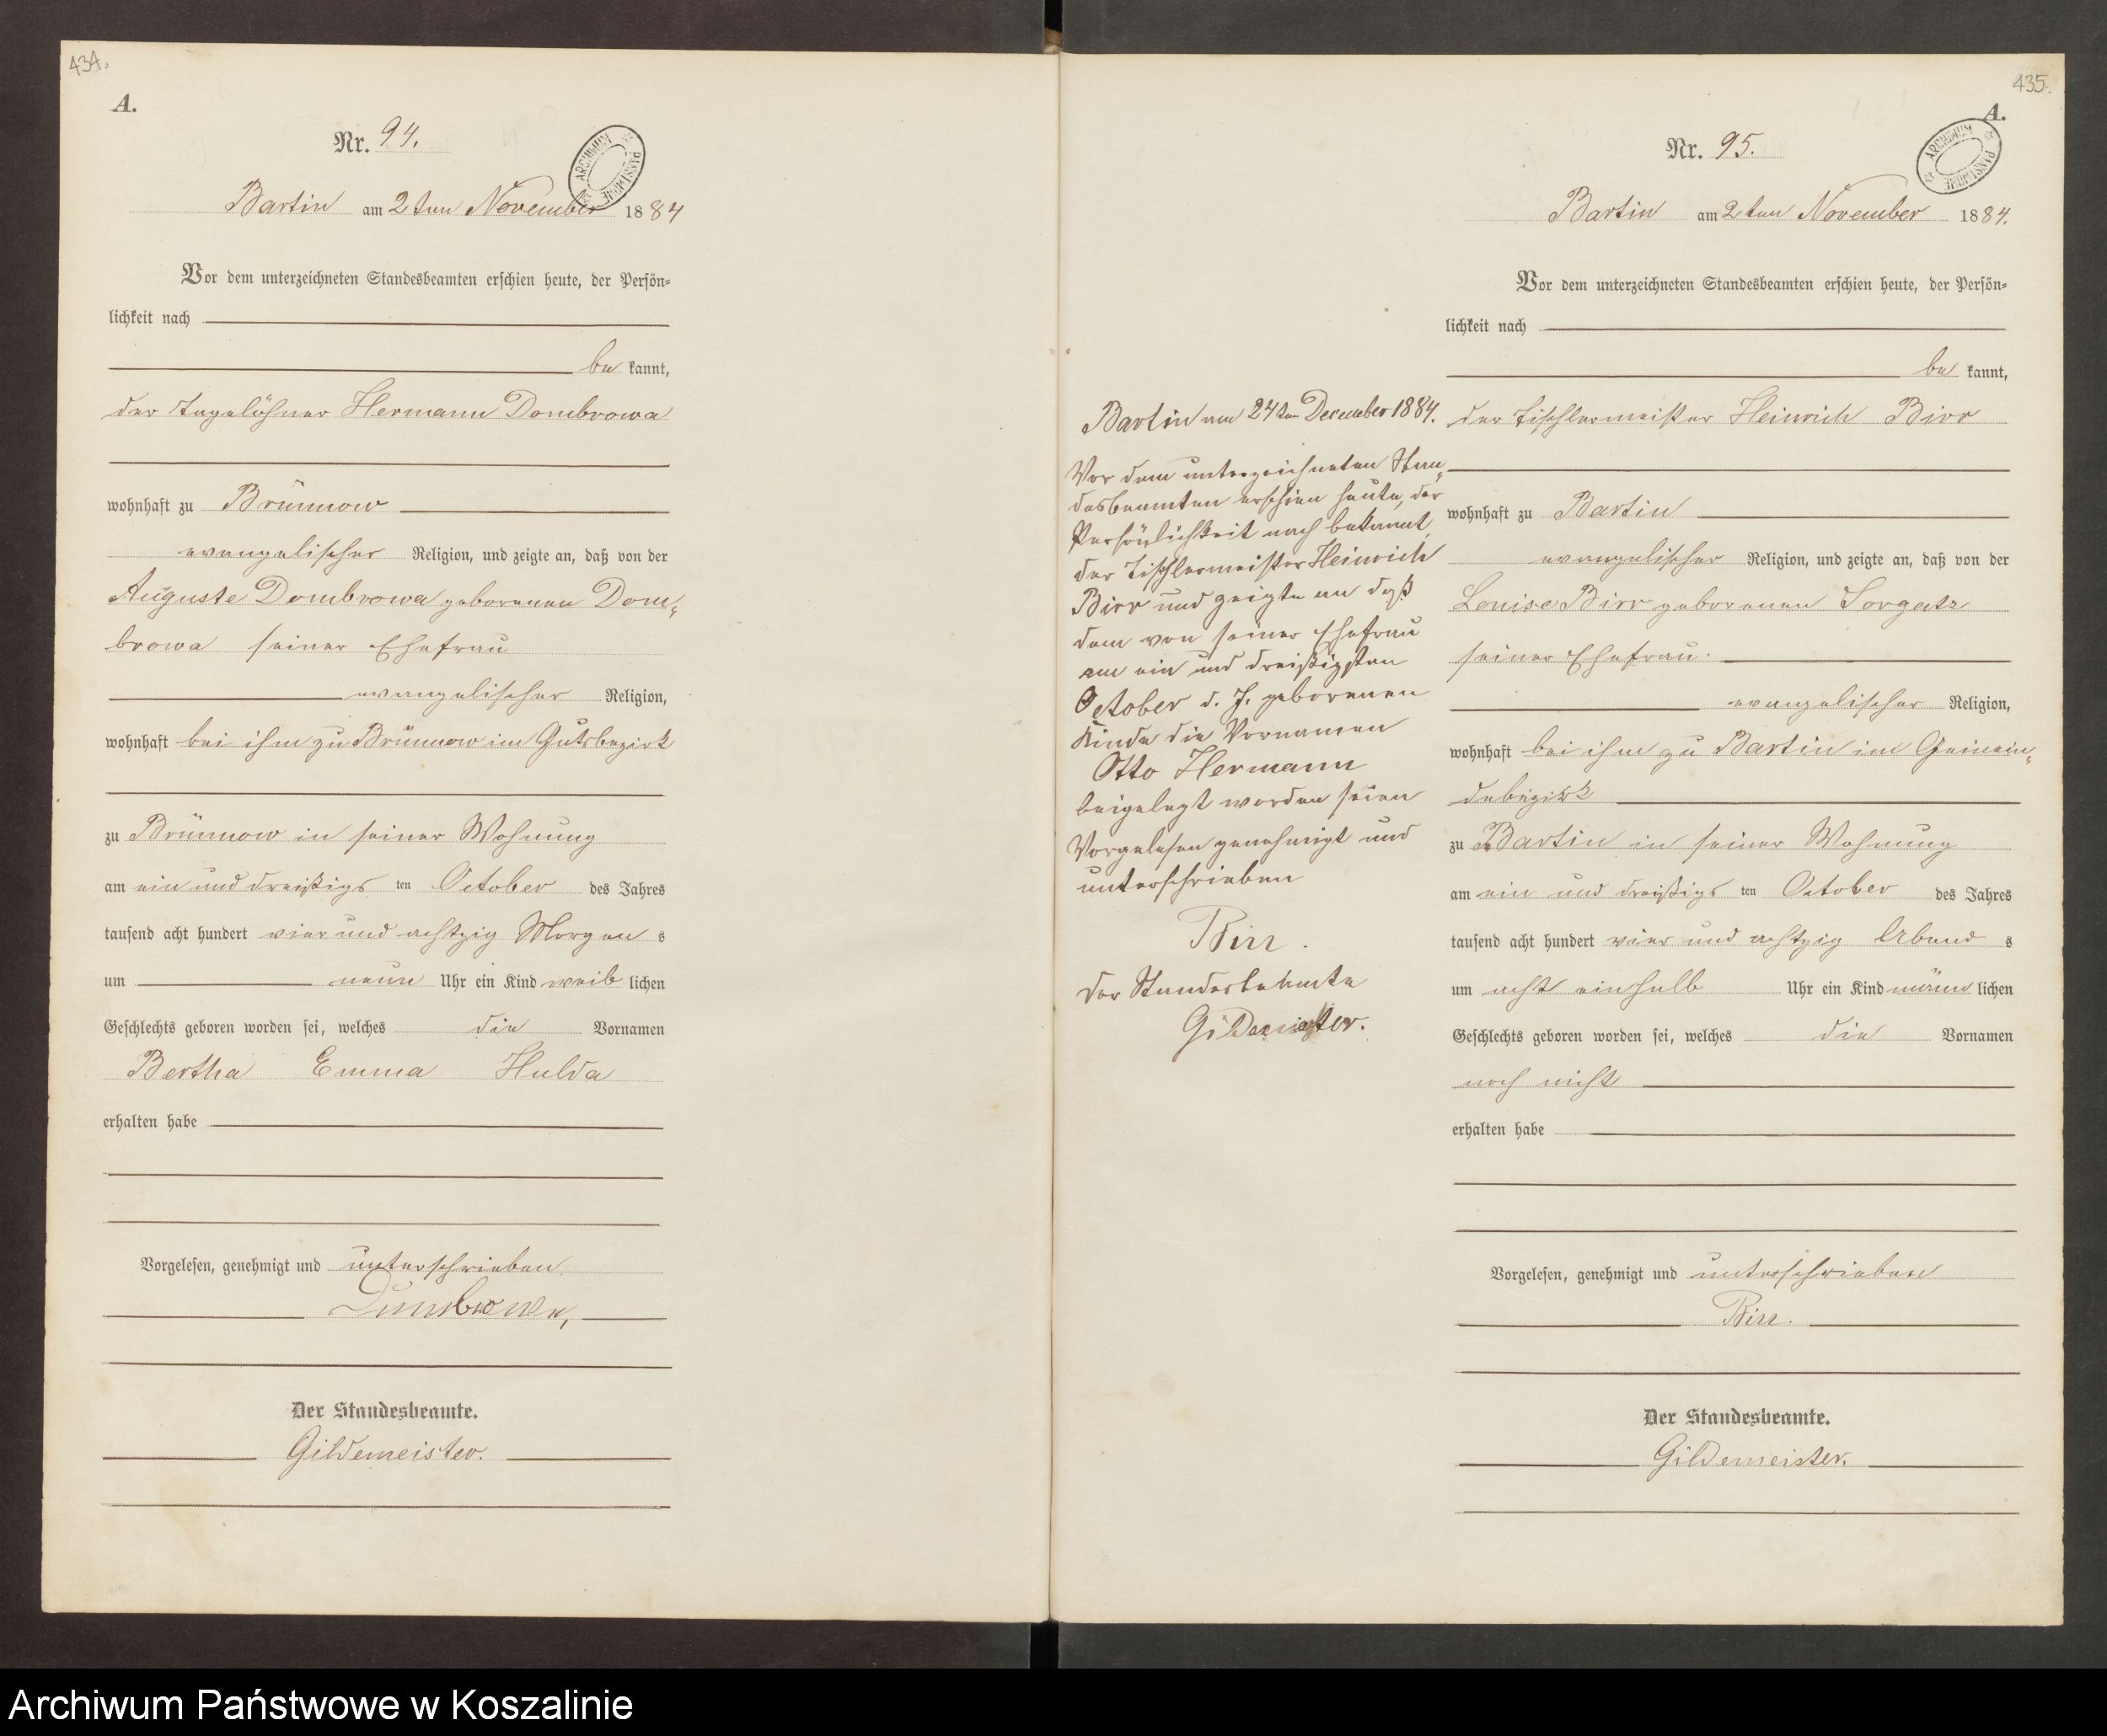 434.
A.
Nr. 94.
ARCHIWUM PAŃSTWOWE
Bartin am 2ten November 1884
Vor dem unterzeichneten Standesbeamten erschien heute, der Persön-
lichkeit nach
be kannt,
der Tagelöhner Hermann Dombrowa
wohnhaft zu Brünnow
evangelischer Religion, und zeigte an, daß von der
Auguste Dombrowa geborenen Dom-
browa seiner Ehefrau
evangelischer Religion,
wohnhaft bei ihm zu Brünnow im Gutsbezirk
zu Brünnow in seiner Wohnung
am ein und dreißigs ten October des Jahres
tausend acht hundert vier und achtzig Morgen s
um neun Uhr ein Kind weib lichen
Geschlechts geboren worden sei, welches die Vornamen
Bertha Emma Hulda
erhalten habe
Vorgelesen, genehmigt und unterschrieben
Dombrowa,
Der Standesbeamte.
Gildemeister.
435.
A.
Nr. 95.
ARCHIWUM PAŃSTWOWE
Bartin am 2ten November 1884.
Vor dem unterzeichneten Standesbeamten erschien heute, der Persön-
lichkeit nach
be kannt,
der Tischlermeister Heinrich Birr
wohnhaft zu Bartin
evangelischer Religion, und zeigte an, daß von der
Louise Birr geborenen Sorgatz
seiner Ehefrau.
evangelischer Religion,
wohnhaft bei ihm zu Bartin im Gemein-
debezirk
zu Bartin in seiner Wohnung
am ein und dreißigs ten October des Jahres
tausend acht hundert vier und achtzig Abend s
um acht einhalb Uhr ein Kind männ lichen
Geschlechts geboren worden sei, welches die Vornamen
noch nicht
erhalten habe
Vorgelesen, genehmigt und unterschrieben
Birr.
Der Standesbeamte.
Gildemeister.
Bartin am 24ten December 1884.
Vor dem unterzeichneten Stan-
desbeamten erschien heute, der
Persönlichkeit nach bekannt,
der Tischlermeister Heinrich
Birr und zeigte an daß
dem von seiner Ehefrau
am ein und dreißigsten
October d. J. geborenen
Kinde die Vornamen
Otto Hermann
beigelegt worden seien
Vorgelesen genehmigt und
unterschrieben
Birr.
Der Standesbeamte
Gildemeister.
Archiwum Państwowe w Koszalinie